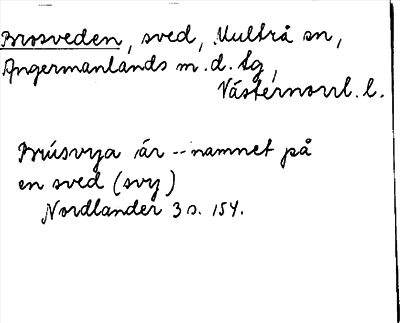 Brosveden, sved, Multrå sn,
Ångermanlands m.d. tg,
Västernorrl. l.
Brúsvya är -- namnet på
en sved (svy)
Nordlander 3 s. 154.